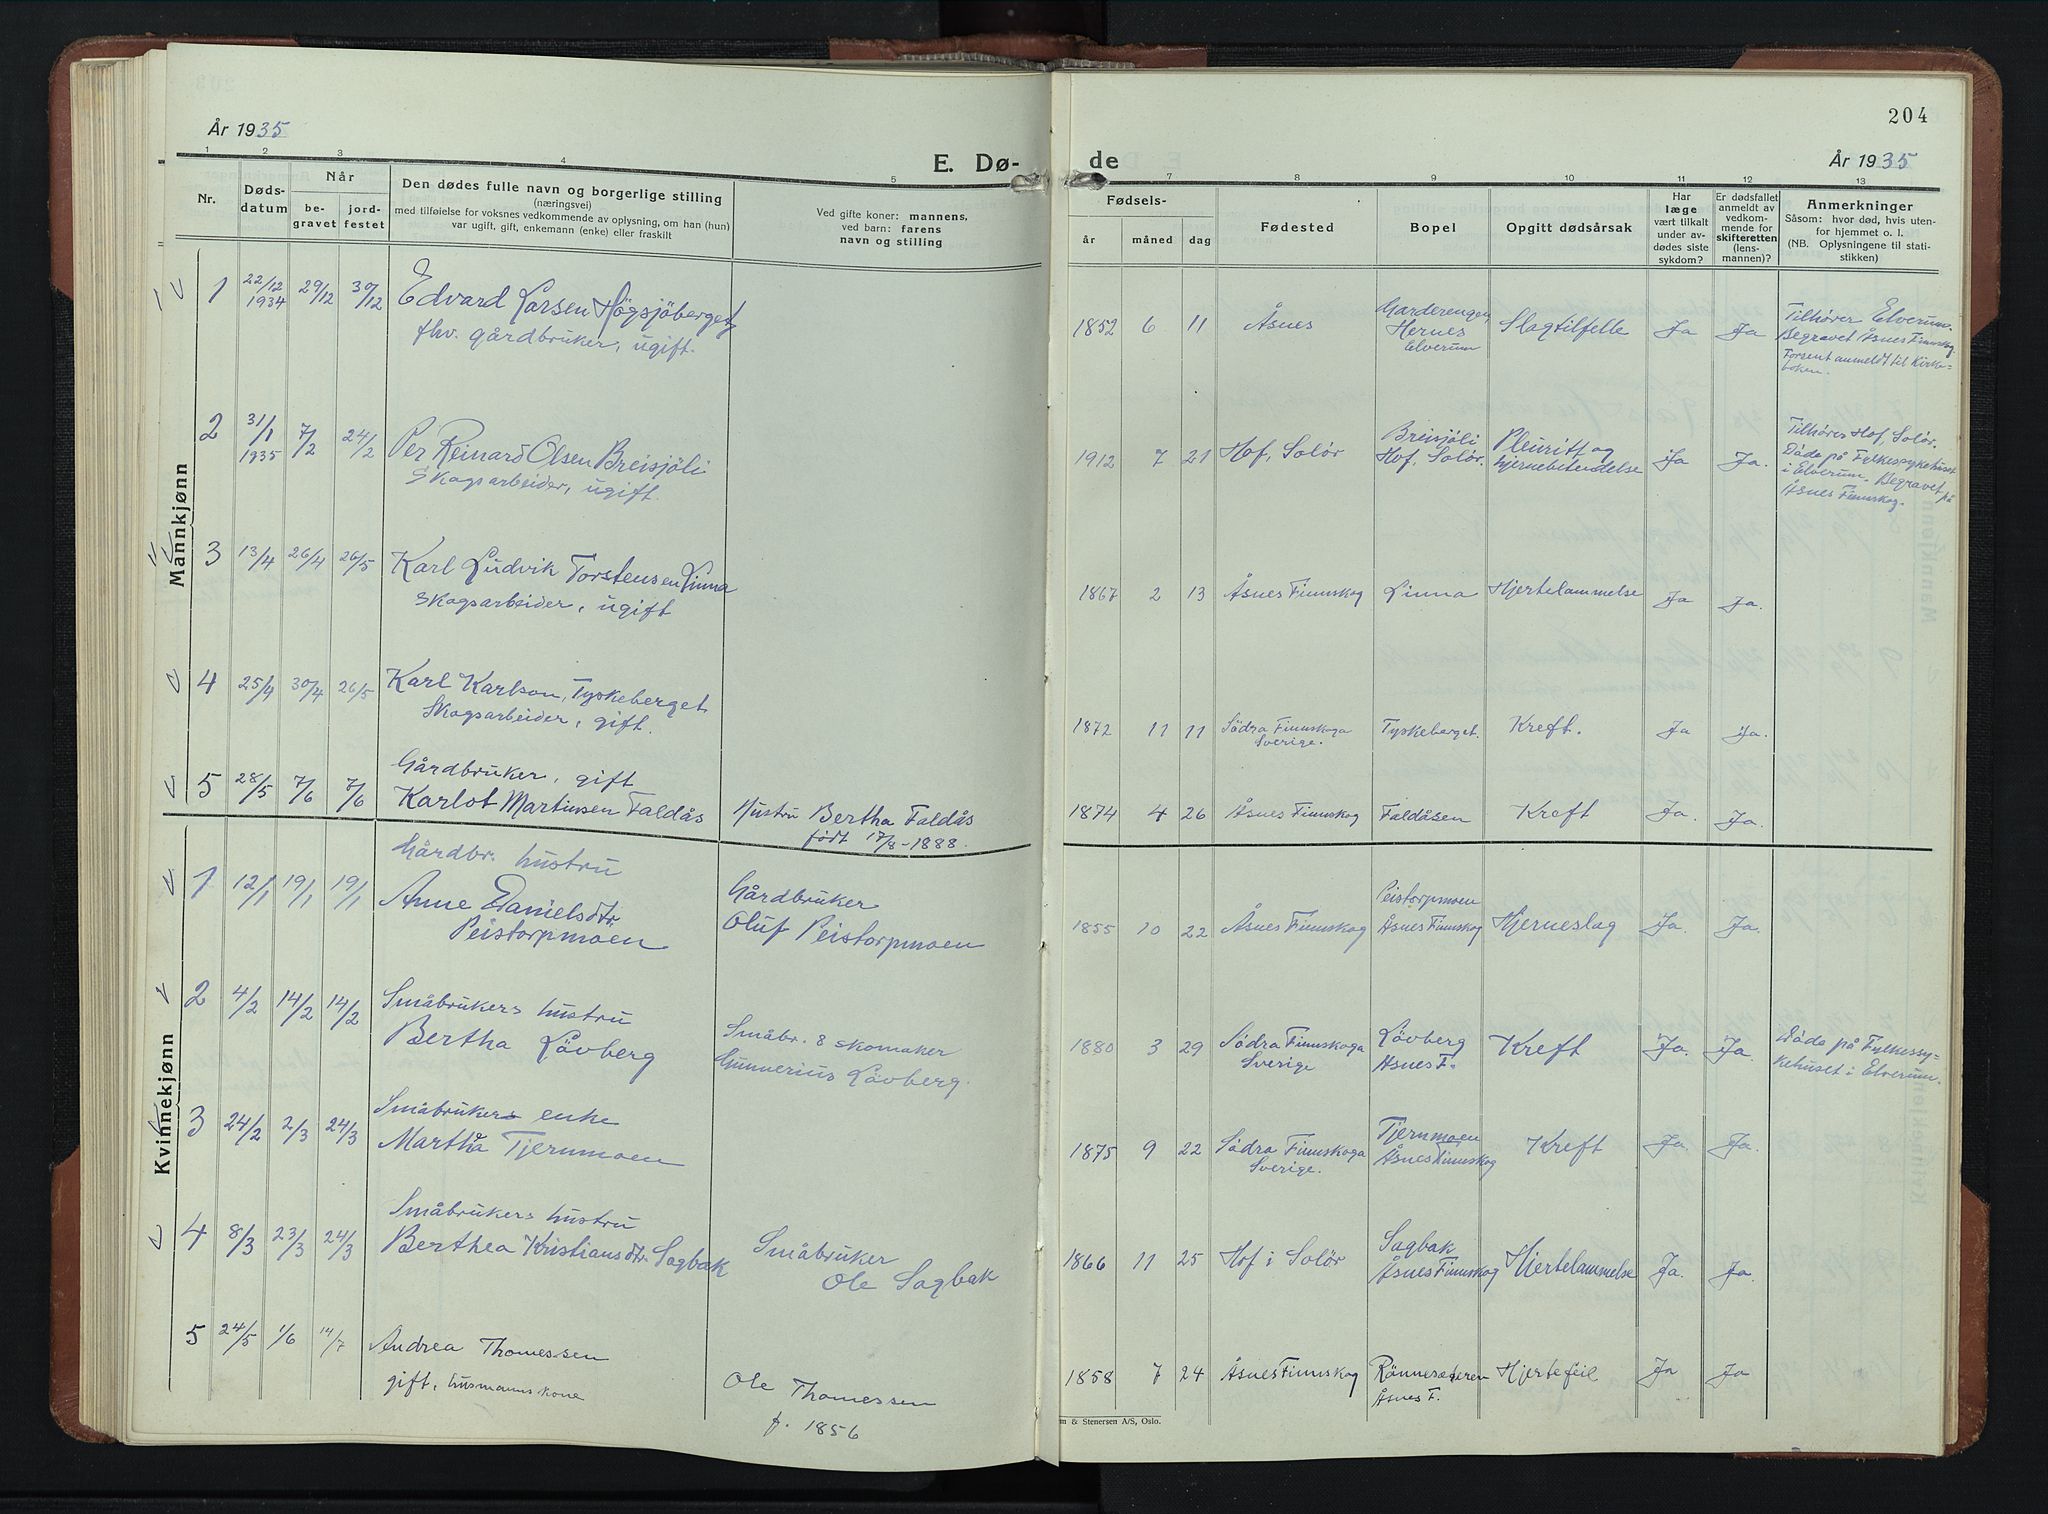 204
År 1935
E. Dø-
de
År 1935
1 2 3 4 5
7 8 9 10 11 12 13
Nr.
Døds-
datum
Når
be-
gravet
jord-
festet
Den dødes fulle navn og borgerlige stilling
(næringsvei)
med tilføielse for voksnes vedkommende av oplysning, om han (hun)
var ugift, gift, enkemann (enke) eller fraskilt
Ved gifte koner: mannens,
ved barn: farens
navn og stilling
Fødsels-
år måned dag
Fødested
Bopel
Opgitt dødsårsak
Har
læge
vært tilkalt
under av-
dødes siste
sykdom?
Er dødsfallet
anmeldt av
vedkom-
mende for
skifteretten
(lens-
mannen)?
Anmerkninger
Såsom: hvor død, hvis uten-
for hjemmet o. l.
(NB. Oplysningene til stati-
stikken)
Mannkjønn
1 22/12 1934 29/12 30/12 Edvard Larsen Högsjöberget
fhv. gårdbruker, ugift.
1852 6 11 Åsnes
Garderengen,
Hernes
Elverum
Slagtilfelle Ja Ja
Tilhører Elverum.
Begravet Åsnes Finnskog.
Forsent anmeldt til Kirke-
boken.
2 31/1 1935 7/2 24/2 Per Reinard Olsen Breisjöli
Skogsarbeider, ugift.
1912 7 21 Hof, Solör
Breisjöli
Hof, Solör.
Pleuritt og
hjernebetendelse
Ja Ja.
Tilhörer Hof, Solör.
Döde på Fylkessykehuset
i Elverum. Begravet på
Åsnes Finnskog.
3 13/4 26/4 26/5 Karl Ludvik Torstensen Linna
Skogsarbeider, ugift
1867 2 13 Åsnes Finnskog Linna Hjertelammelse Ja Ja.
4 25/4 30/4 26/5 Karl Karlson, Tyskeberget
Skogsarbeider, gift.
1872 11 11 Södra Finnskoga
Sverige.
Tyskeberget. Kreft. Ja Ja.
5 28/5 7/6 7/6 Gårdbruker, gift
Karlot Martinsen Faldås
Hustru Bertha Faldås
født 17/8-1888.
1874 4 26 Åsnes Finnskog Faldåsen Kreft Ja. Ja.
Kvinnekjønn
1 12/1 19/1 19/1 Gårdbr. hustru
Anne Danielsdtr
Peistorpmoen
Gårdbruker
Oluf Peistorpmoen
1855 10 22 Åsnes Finnskog
Peistorpmoen
Åsnes Finnskog
Hjerneslag Ja. Ja.
2 4/2 14/2 14/2 Småbrukers hustru
Bertha Lövberg
Småbr. & skomaker
Gunnerius Lövberg.
1880 3 29 Södra Finnskoga
Sverige
Lövberg
Åsnes F.
Kreft Ja. Ja.
Döde på Fylkessy-
kehuset i Elverum.
3 24/2 2/3 24/3 Småbrukers enke
Martha Tjernmoen
1875 9 22 Södra Finnskoga
Sverige.
Tjernmoen
Åsnes Finnskog
Kreft Ja. Ja.
4 8/3 23/3 24/3 Småbrukers hustru
Berthea Kristiansdtr. Sagbak
Småbruker
Ole Sagbak
1866 11 25 Hof i Solör
Sagbak
Åsnes Finnskog
Hjertelammelse Ja. Ja.
5 24/5 1/6 14/7 Andrea Thomessen
gift, husmannskone
Ole Thomessen
f. 1856
1858 7 24 Åsnes Finnskog
Åsnes F.
Hjertefeil Ja Ja
m & Stenersen A/S, Oslo.